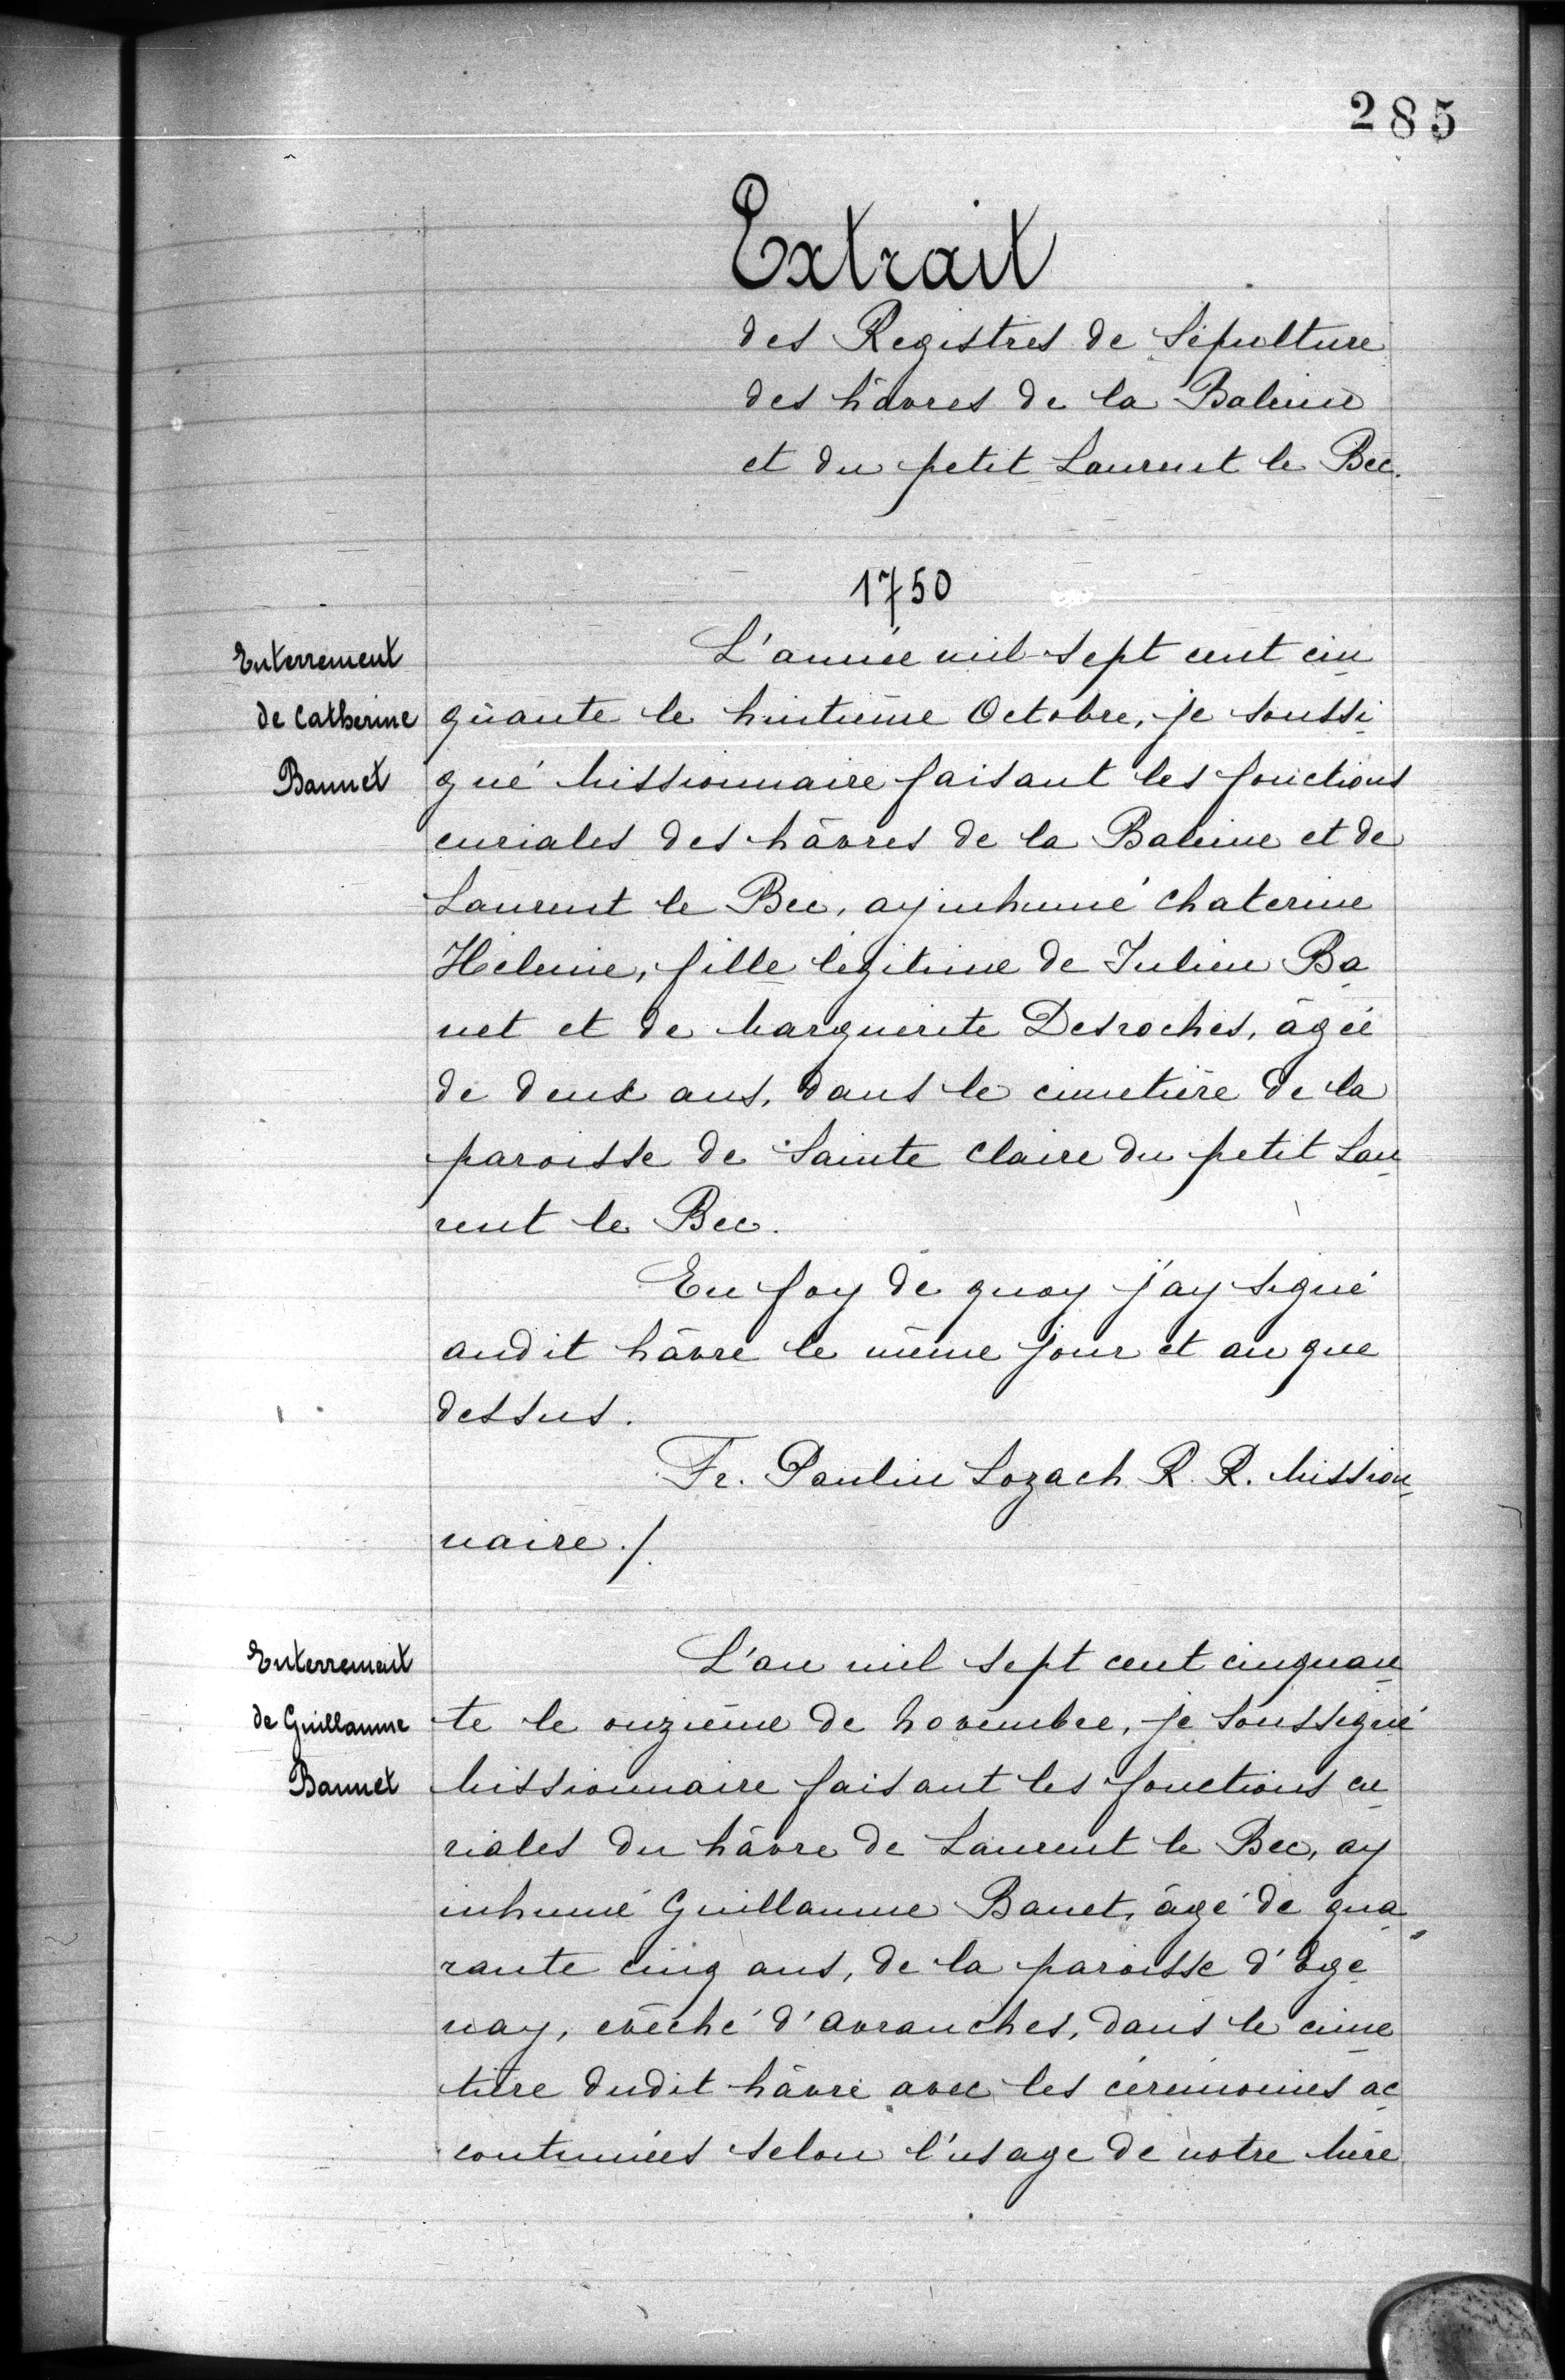 285
Extrait
des Registres de Sépulture
des hâvres de la Baleine
et du petit Laurent le Bec.
1750
Enterrement
de Catherine
Bannet
L'année mil sept cent cin
quante le huitième Octobre, je soussi
gné Missionnaire faisant les fonctions
curiales des hâvres de la Baleine et de
Laurent le Bec, ay inhumé Chaterine
Hélenne, fille légitime de Julien Ba
net et de Marguerite Desroches, âgée
de deux ans, dans le cimetière de la
paroisse de Sainte Claire du petit Lau
rent le Bec.
En foy de quoy j'ay signé
audit hâvre le même jour et an que
dessus.
Fr. Paulin Lozach R. R. Mission
naire./.
Enterrement
de Guillaume
Bannet
L'an mil sept cent cinquan
te le onzième de Novembre, je soussigné
Missionnaire faisant les fonctions cu
riales du hâvre de Laurent le Bec, ay
inhumé Guillaume Banet, âgé de qua
rante cinq ans, de la paroisse
évêché d'Avranches, dans le cime
tière dudit hâvre avec les cérémonies ac
coutumées selon l'usage de notre Mère